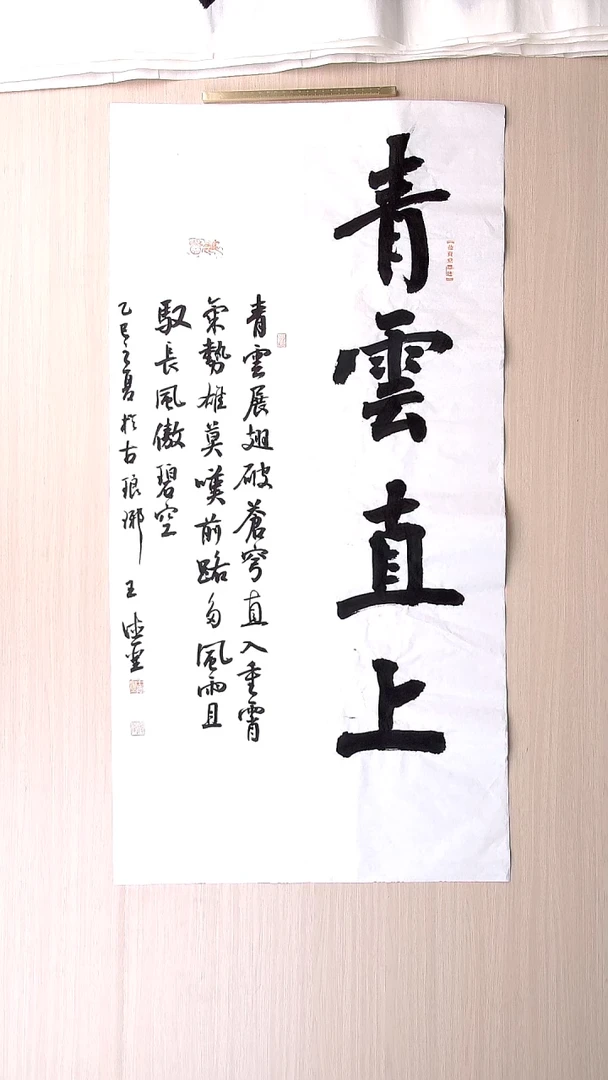 青雲直上
青雲展翅破蒼穹直入重霄
氣勢雄莫嘆前路多風雨且
馭長風傲碧空
乙巳之夏於古琅琊 王